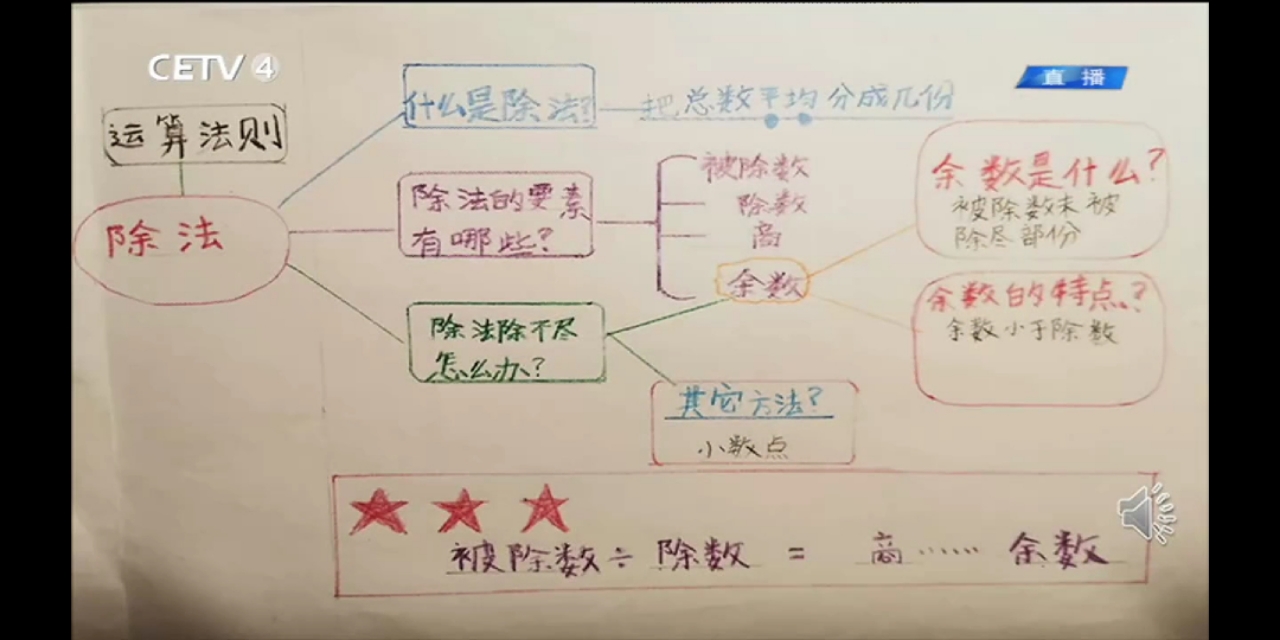 CETV 4
直播
运算法则
除法
什么是除法?
把总数平均分成几份
除法的要素
有哪些?
被除数
除数
高
余数
余数是什么?
被除数未被
除尽部份
余数的特点?
余数小于除数
除法除不尽
怎么办?
其它方法?
小数点
被除数÷除数=高……余数